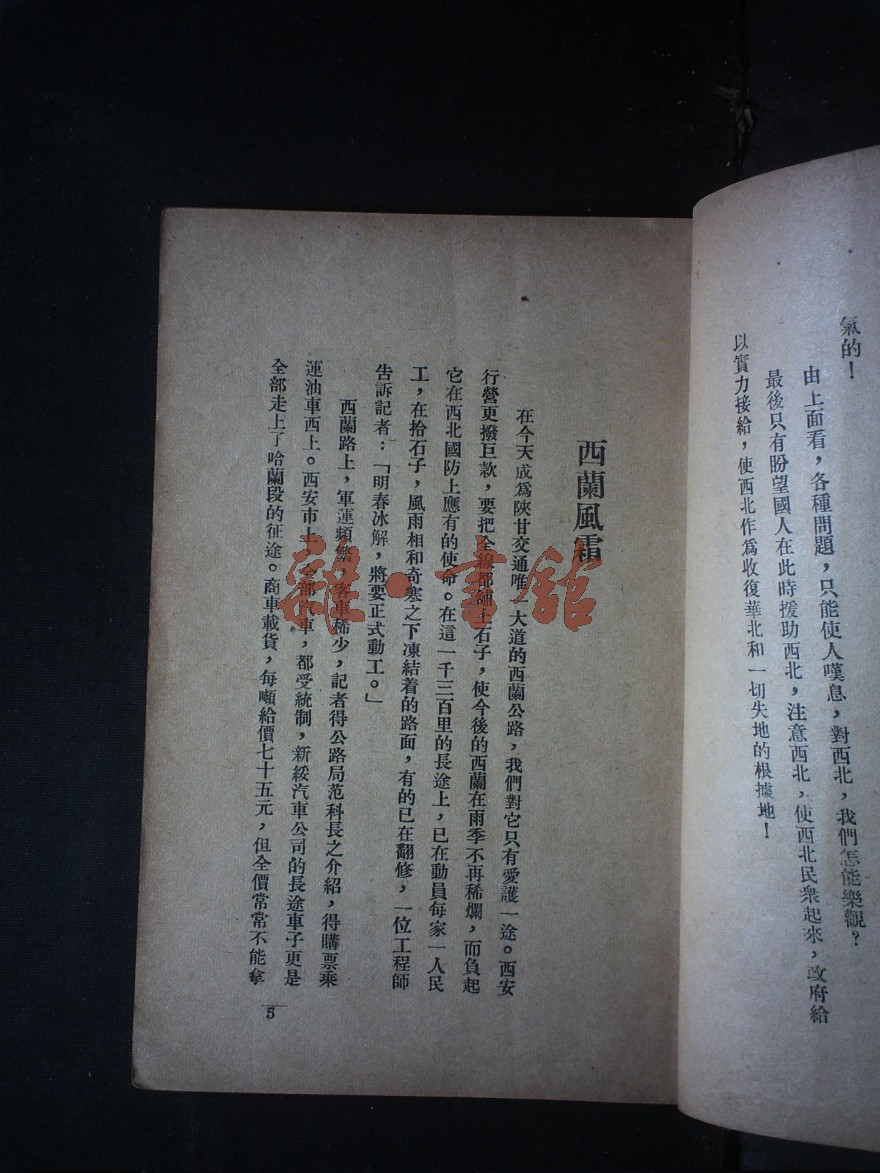 氣的！
由上面看，各種問題，只能使人嘆息，對西北，我們怎能樂觀？
最後只有盼望國人在此時援助西北，注意西北，使西北民衆起來，政府給
以實力接給，使西北作爲收復華北和一切失地的根據地！
西蘭風霜
在今天成爲陝甘交通唯一大道的西蘭公路，我們對它只有愛護一途。西安
行營更撥巨款，要把全線都鋪上石子，使今後的西蘭在雨季不再稀爛，而負起
它在西北國防上應有的使命。在這一千三百里的長途上，已在動員每家一人民
工，在拾石子，風雨相和奇寒之下凍結着的路面，有的已在翻修，一位工程師
告訴記者：「明春冰解，將要正式動工。」
西蘭路上，軍運頻繁，客車稀少，記者得公路局范科長之介紹，得購票乘
運油車西上。西安市上，全部汽車，都受統制，新綏汽車公司的長途車子更是
全部走上了哈蘭段的征途。商車載貨，每噸給價七十五元，但全價常常不能拿
5
雜·書館